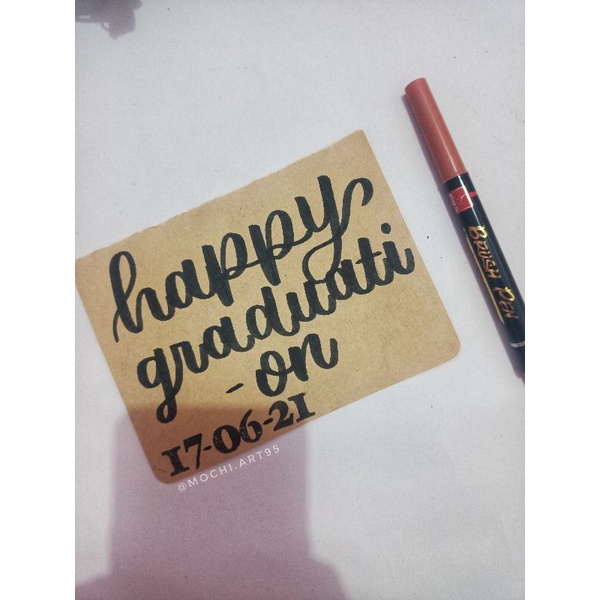 happy
graduati
-on
17-06-21
@MOCHI.ART95
BRUSH PEN